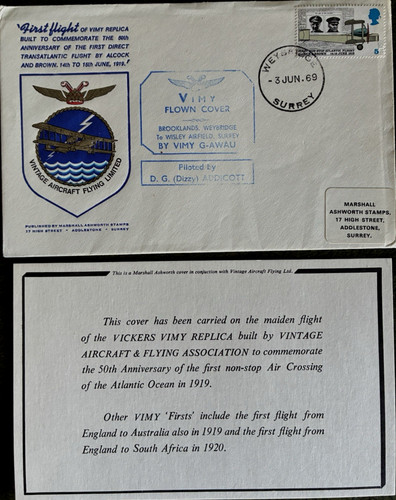 'First flight OF VIMY REPLICA
BUILT TO COMMEMORATE THE 50th
ANNIVERSARY OF THE FIRST DIRECT
TRANSATLANTIC FLIGHT BY ALCOCK
AND BROWN, 14TH TO 15TH JUNE, 1919.'
VINTAGE AIRCRAFT FLYING LIMITED
PUBLISHED BY MARSHALL ASHWORTH STAMPS
17 HIGH STREET • ADDLESTONE • SURREY
VIMY
FLOWN COVER
BROOKLANDS, WEYBRIDGE
To WISLEY AIRFIELD, SURREY
BY VIMY G-AWAU
Piloted By
D. G. (Dizzy) ADDICOTT
WEYBRIDGE
-3 JUN. 69
SURREY
5
MARSHALL
ASHWORTH STAMPS,
17 HIGH STREET,
ADDLESTONE,
SURREY.
This is a Marshall Ashworth cover in conjuction with Vintage Aircraft Flying Ltd.
This cover has been carried on the maiden flight
of the VICKERS VIMY REPLICA built by VINTAGE
AIRCRAFT & FLYING ASSOCIATION to commemorate
the 50th Anniversary of the first non-stop Air Crossing
of the Atlantic Ocean in 1919.
Other VIMY 'Firsts' include the first flight from
England to Australia also in 1919 and the first flight from
England to South Africa in 1920.